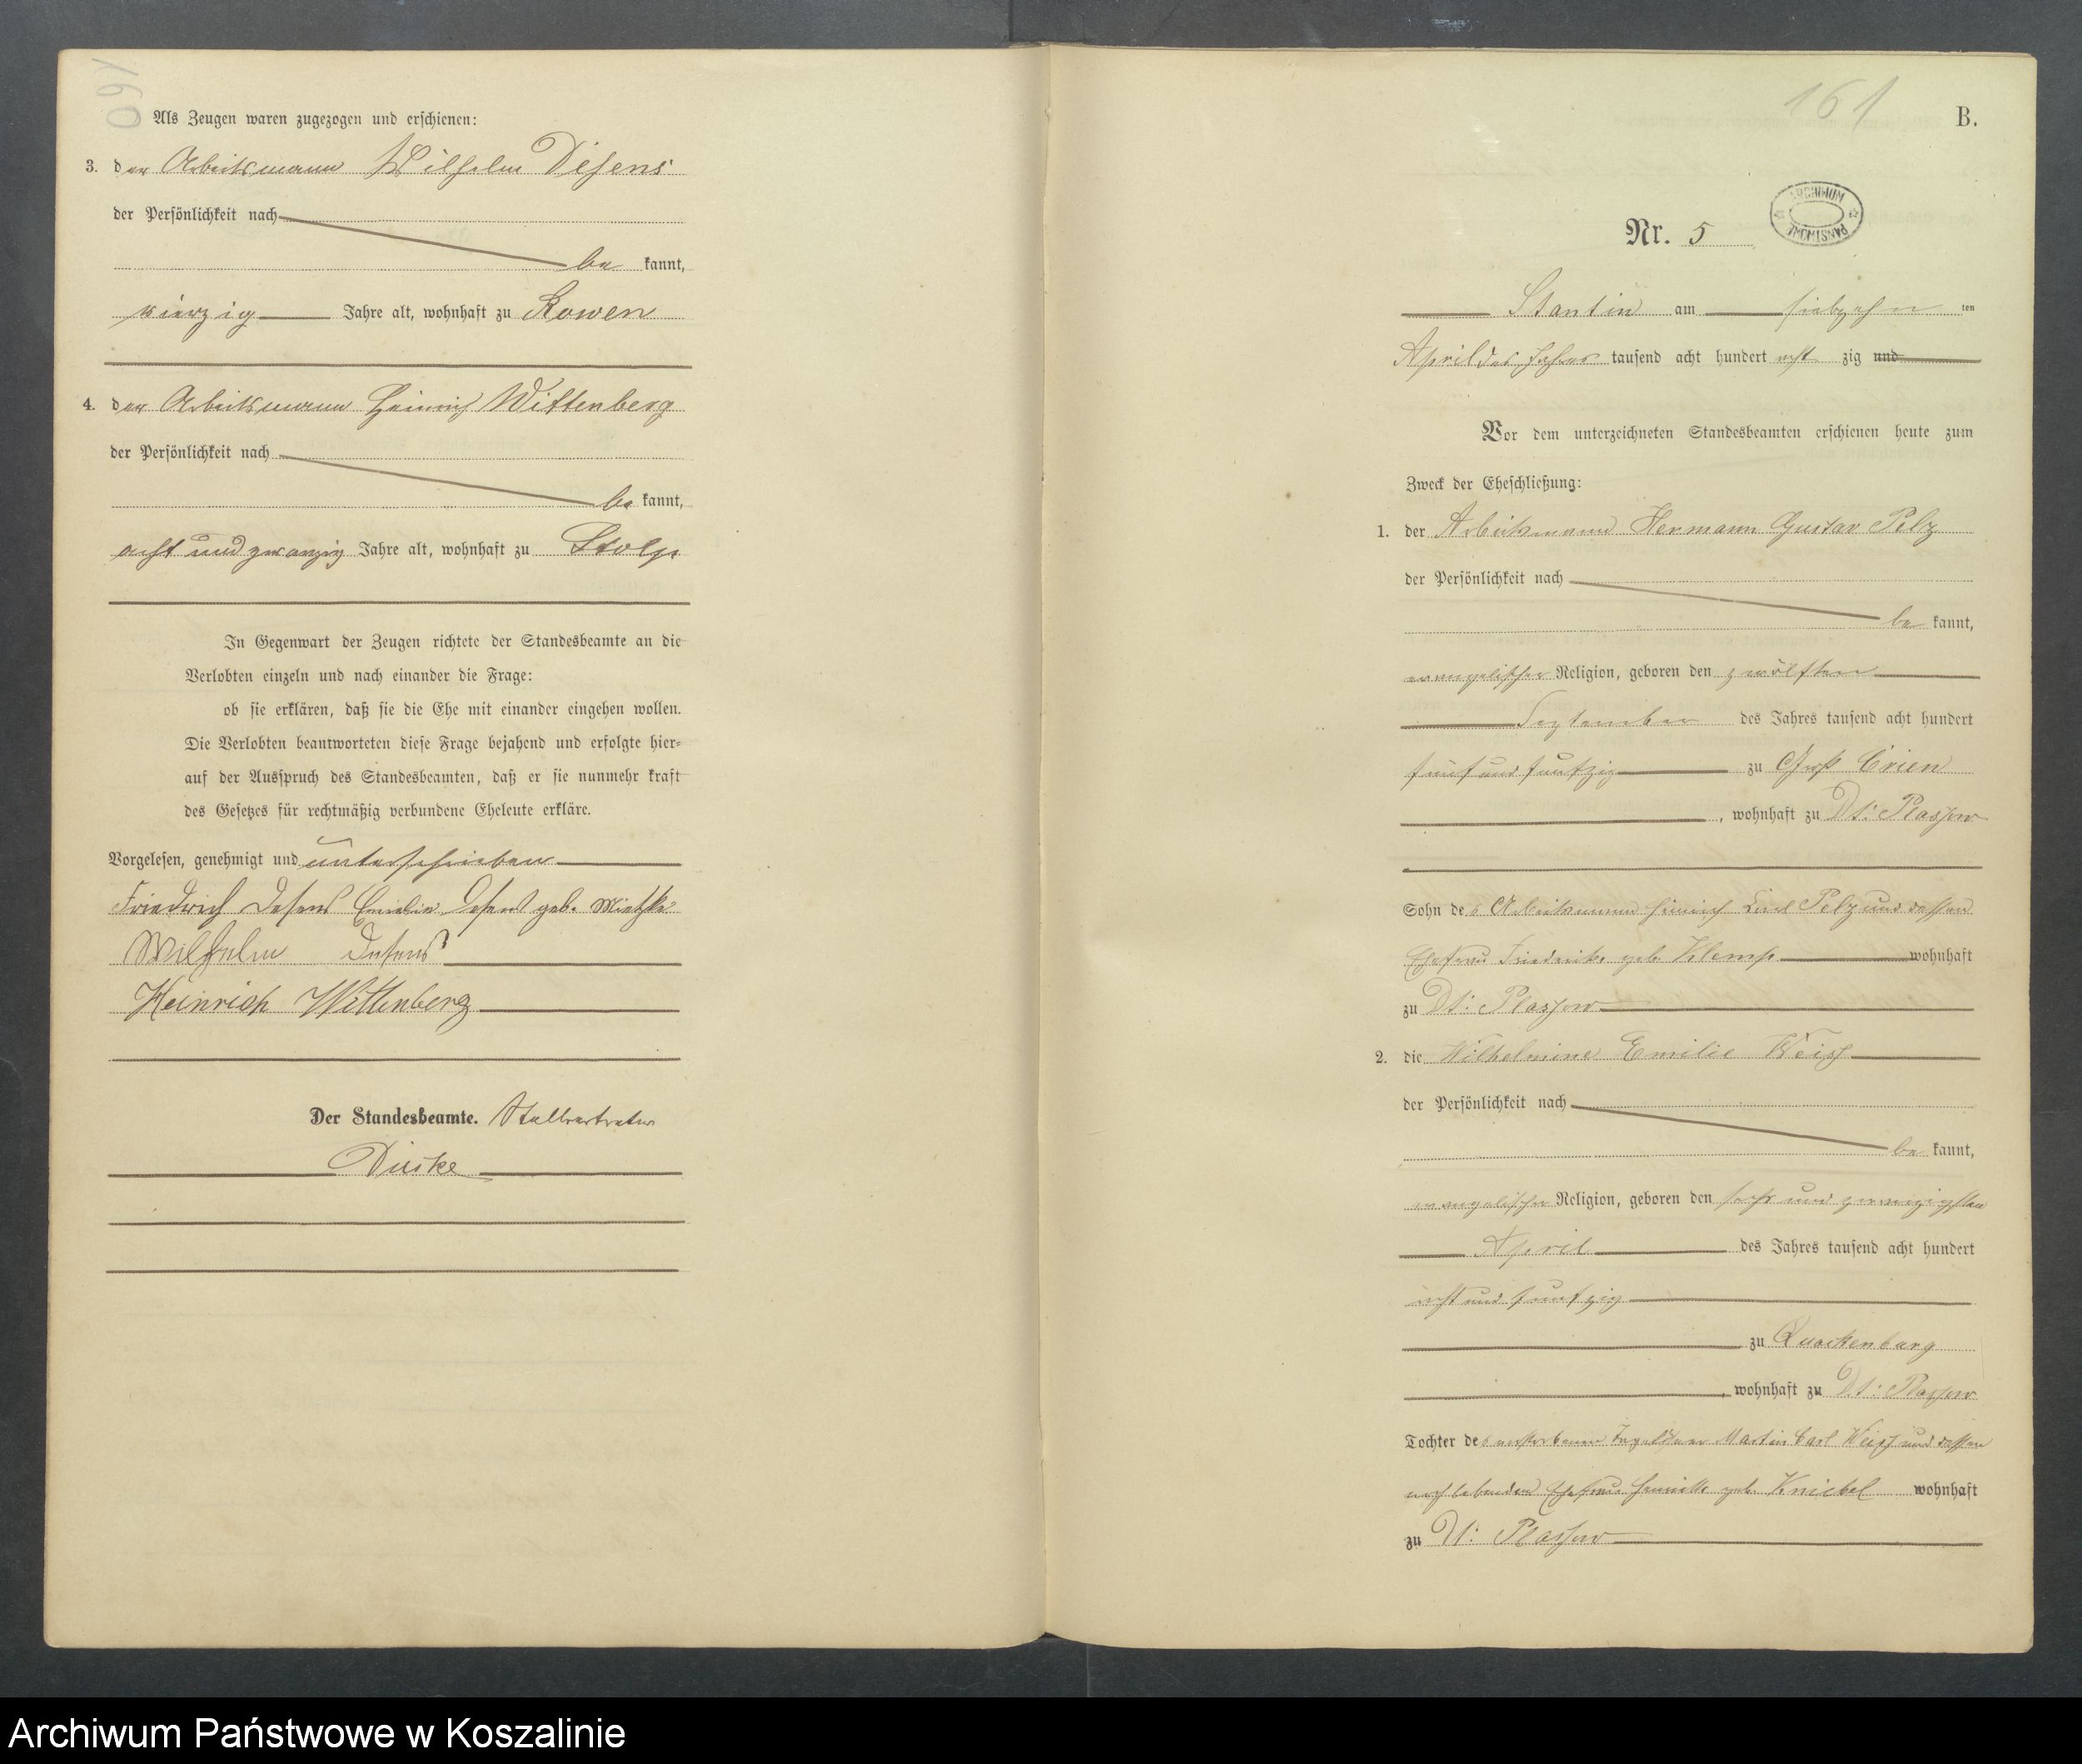 160
Als Zeugen waren zugezogen und erschienen:
3. der Arbeitsmann Wilhelm Desens
der Persönlichkeit nach
be kannt,
vierzig Jahre alt, wohnhaft zu Rowen
4. der Arbeitsmann Heinrich Wittenberg
der Persönlichkeit nach
be kannt,
acht und zwanzig Jahre alt, wohnhaft zu Stolp
In Gegenwart der Zeugen richtete der Standesbeamte an die
Verlobten einzeln und nach einander die Frage:
ob sie erklären, daß sie die Ehe mit einander eingehen wollen.
Die Verlobten beantworteten diese Frage bejahend und erfolgte hier-
auf der Ausspruch des Standesbeamten, daß er sie nunmehr kraft
des Gesetzes für rechtmäßig verbundene Eheleute erkläre.
Vorgelesen, genehmigt und unterschrieben
Friedrich Desens Emilie Desens geb. Mietzke
Wilhelm Desens
Heinrich Wittenberg
Der Standesbeamte. Stellvertreter
161
B.
ARCHIWUM PAŃSTWOWE
Nr. 5
Stantin am siebzehn ten
April des Jahres tausend acht hundert acht zig und
Vor dem unterzeichneten Standesbeamten erschienen heute zum
Zweck der Eheschließung:
1. der Arbeitsmann Hermann Gustav Pelz
der Persönlichkeit nach
be kannt,
evangelischer Religion, geboren den zwölften
September des Jahres tausend acht hundert
fünf und funfzig zu Groß Crien
, wohnhaft zu Dt: Plassow
Sohn des Arbeitsmann Heinrich Carl Pelz und dessen
Ehefrau Friederike geb. Klemp wohnhaft
zu Dt: Plassow
2. die Wilhelmine Emilie Weiss
der Persönlichkeit nach
be kannt,
evangelischer Religion, geboren den sechs und zwanzigsten
April des Jahres tausend acht hundert
acht und funfzig
zu Quackenburg
, wohnhaft zu Dt: Plassow
Tochter des verstorbenen Martin Carl Weiss und dessen
noch lebenden Ehefrau Henriette geb. Kniebel wohnhaft
zu Dt: Plassow
Archiwum Państwowe w Koszalinie